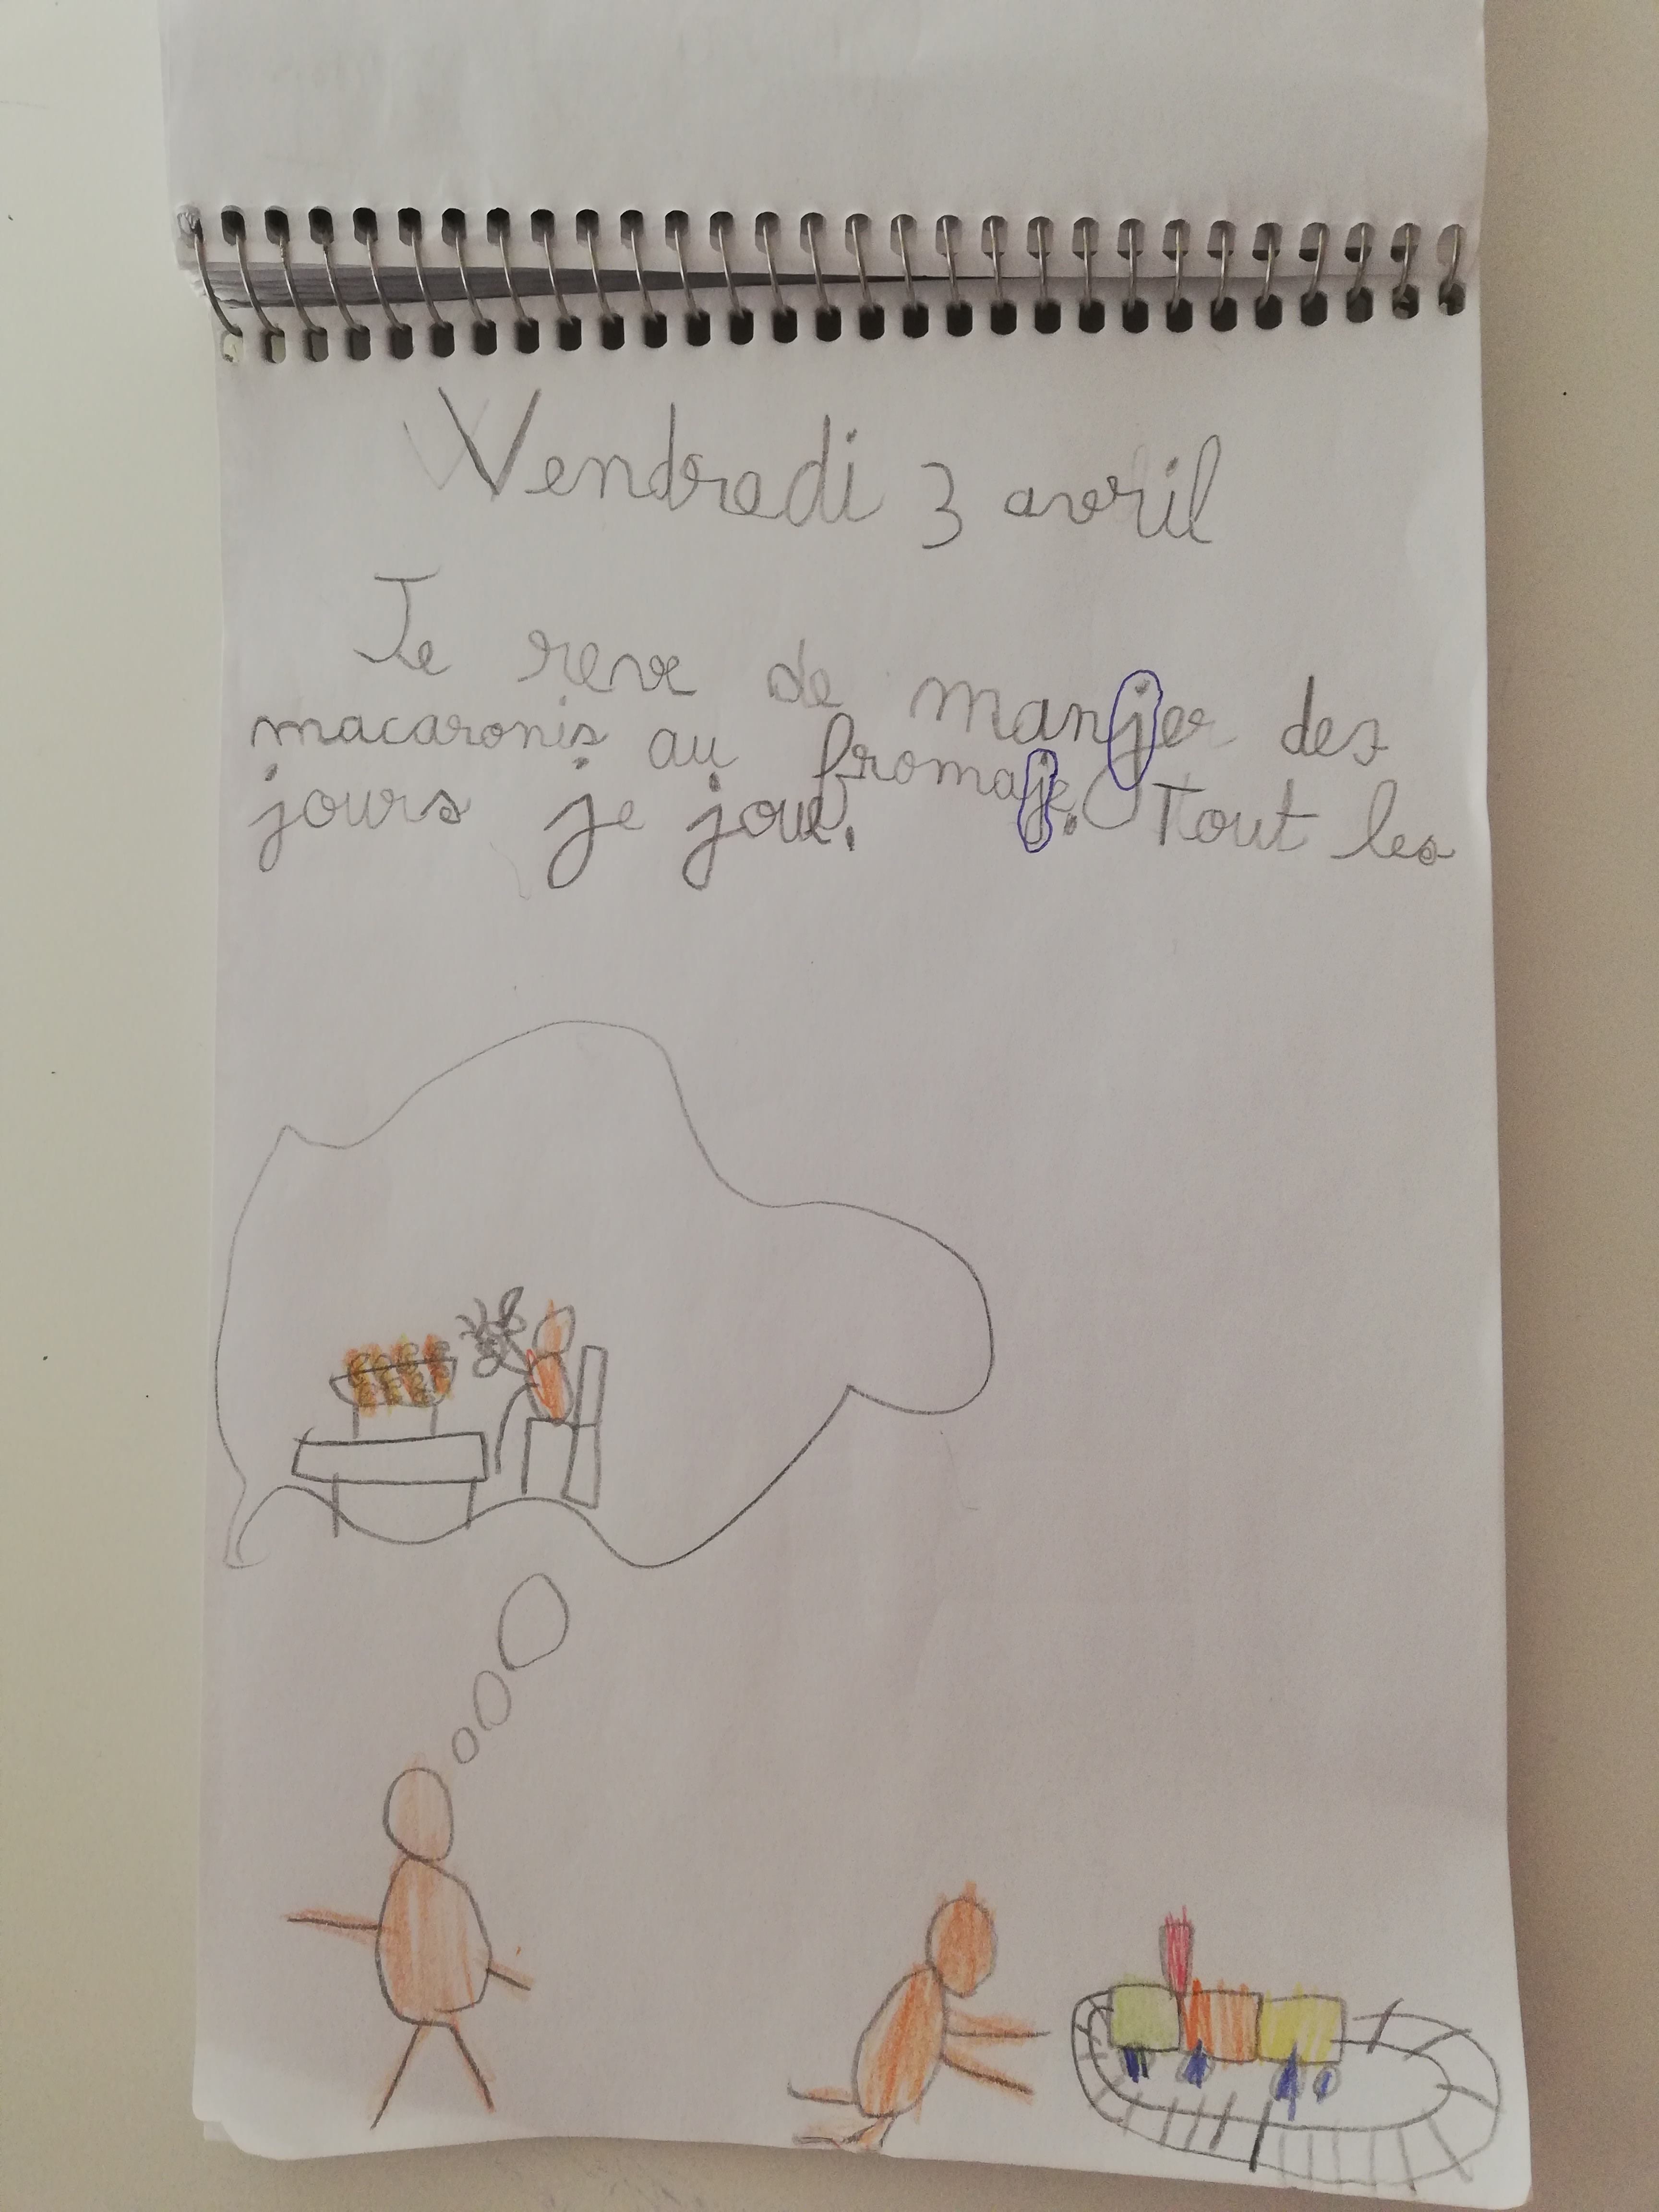 Vendredi 3 avril
Je reve de manjer des
macaronis au fromaje. Tout les
jours je joue.